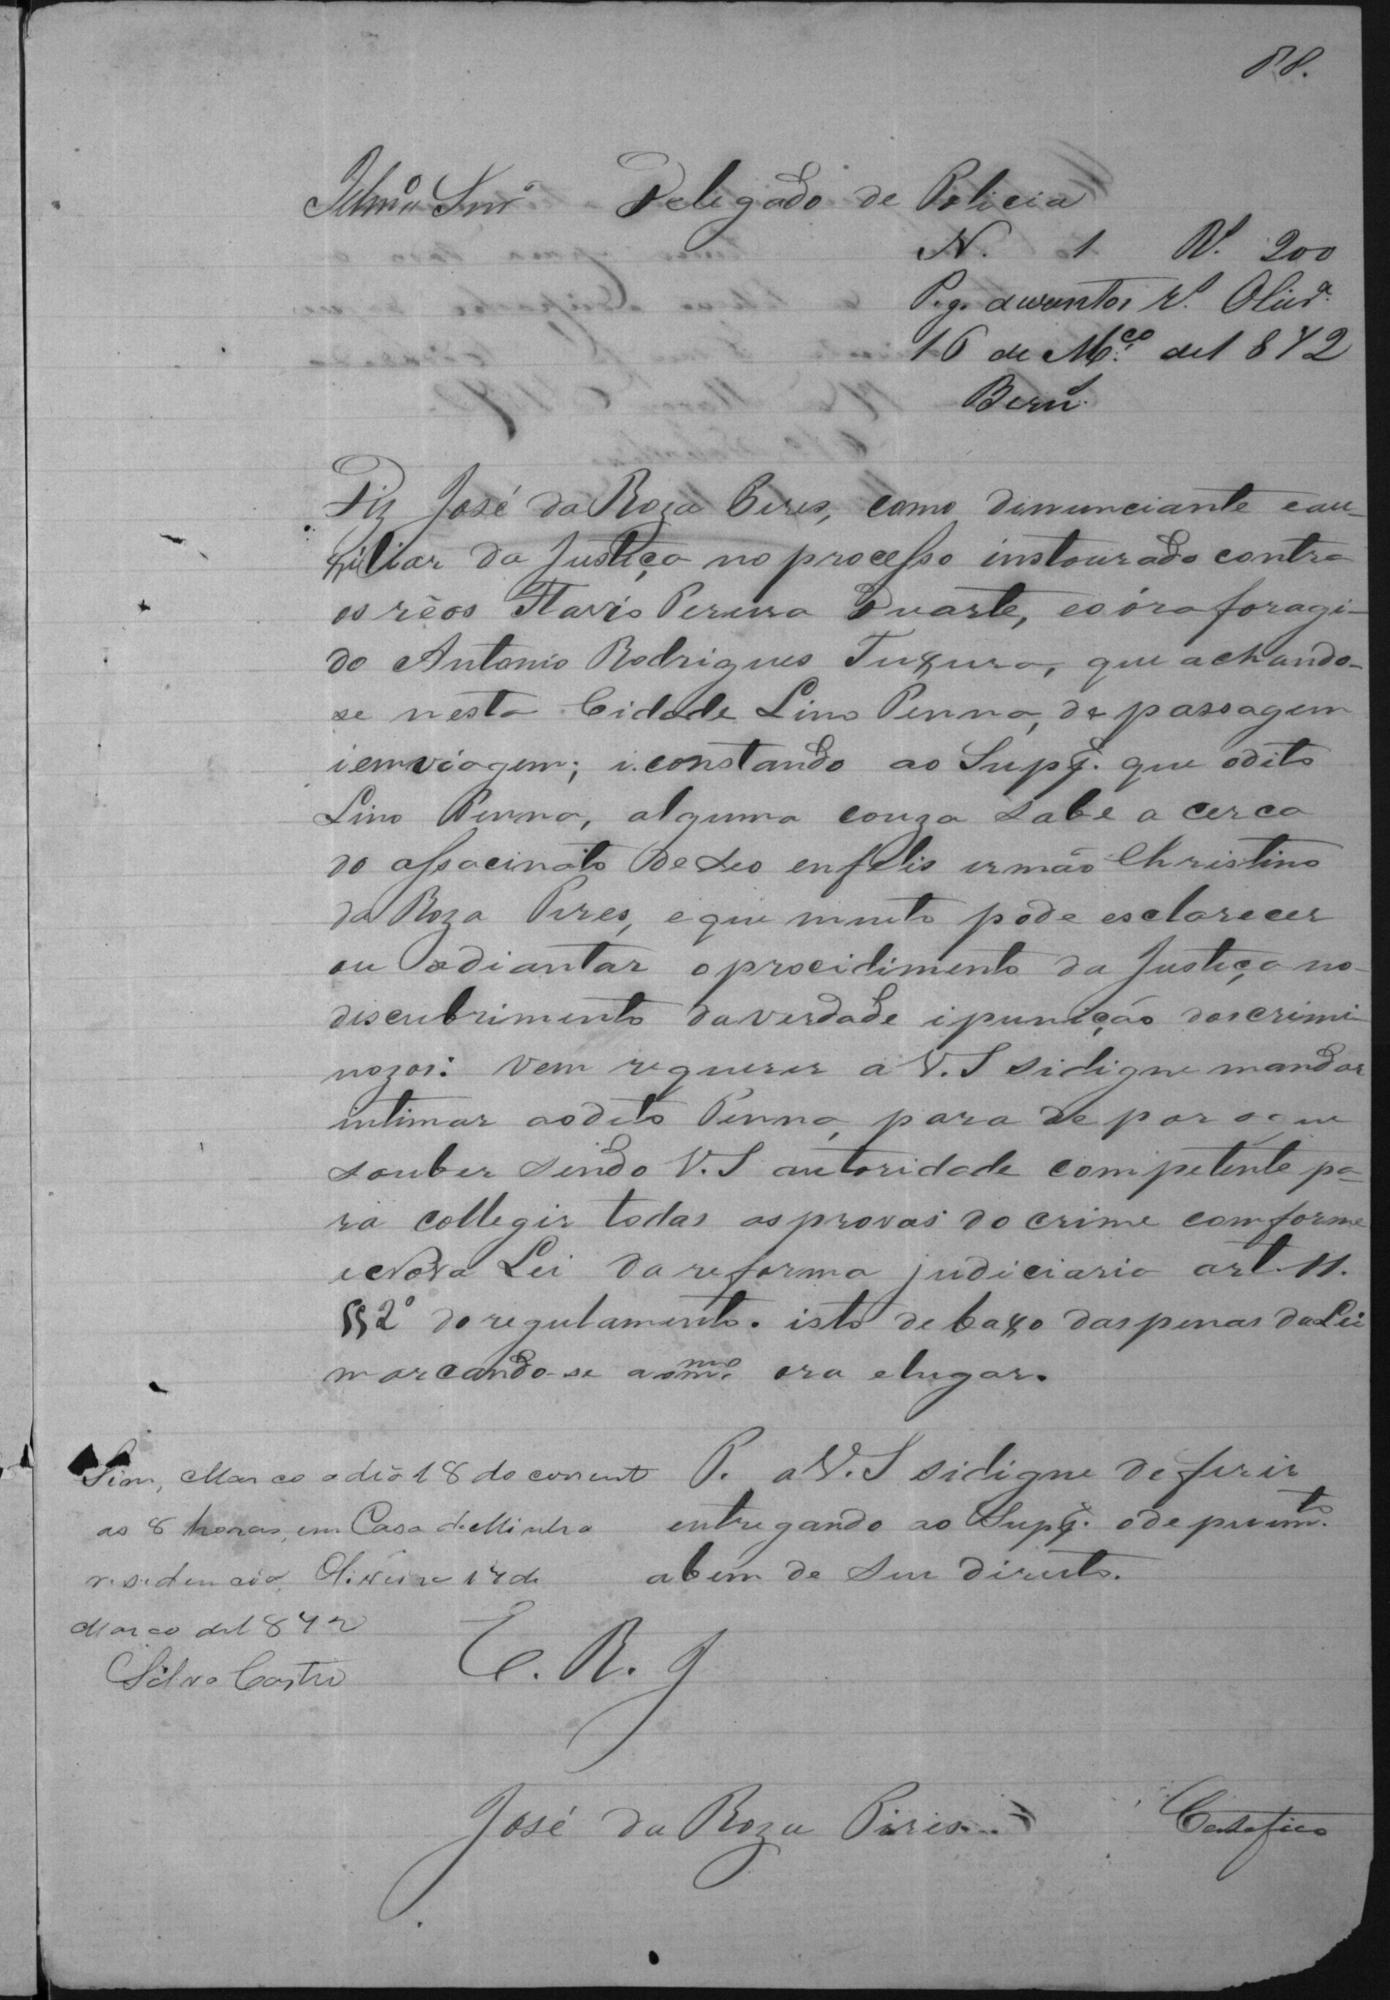 88.
Illmo Snr Delegado de Policia
N. 1 Rs. 200
P.g. duzentos rs. Olivra.
16 de Mço. de 1872
Diz José da Roza Pires, como dinunciante e au-
xiliar da Justiça no processo instourado contra
os réos Flavio Pereira Duarte, e o óra foragi-
do Antonio Rodrigues Teixeira, que achando-
se nesta Cidade Lino Penna, de passagem
i em viagem; i constando ao Supqe. que o dito
Lino Penna, alguma couza sabe a cerca
do assacinato de seo enfelis irmão Christino
da Roza Pires, e que muito pode esclarecer
ou adiantar o procidimento da Justiça no
discubrimento da verdade i punição dos crimi
nozos: vem requerer a V.S si digne mandar
intimar ao dito Penna, para depor o que
souber sendo V.S autoridade competente pa-
ra collegir todas as provas do crime comforme
e nova Lei da reforma judiciaria art. 11.
§§ 2º do regulamento. isto debaxo das penas da Lei
marcando-se a o mmo. ora e lugar.
P. a V.S si digne deferir
entregando ao Supqe. o depuimto.
a bem de seu direito.
E. R. J
José da Roza Pires
Sim, Marco o dia 18 do corrent
as 8 horas, em Casa de Minha
residencia, Oliveira 17 de
Março de 1872
Silva Castro
Certefico